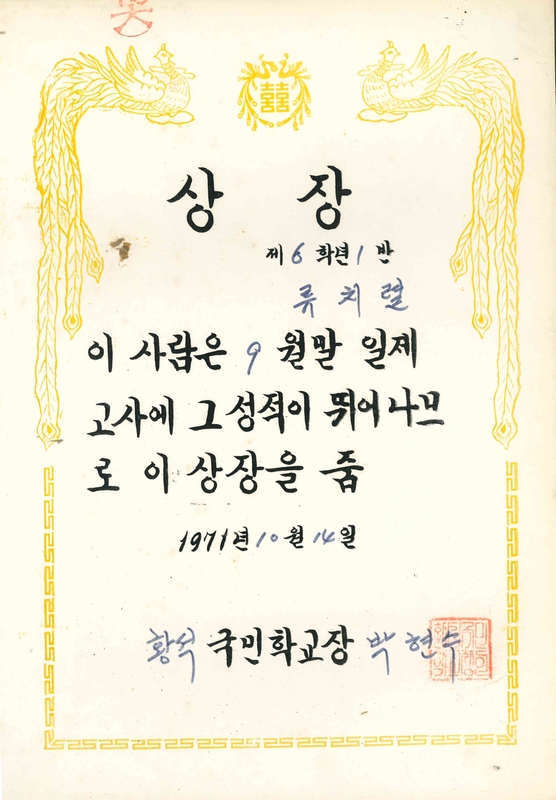 상 장
제 6 학년 1 반
류 치 렬
이 사람은 9 월말 일제
고사에 그 성적이 뛰어나므
로 이 상장을 줌
1971년 10월 14일
황석 국민학교장 박현수